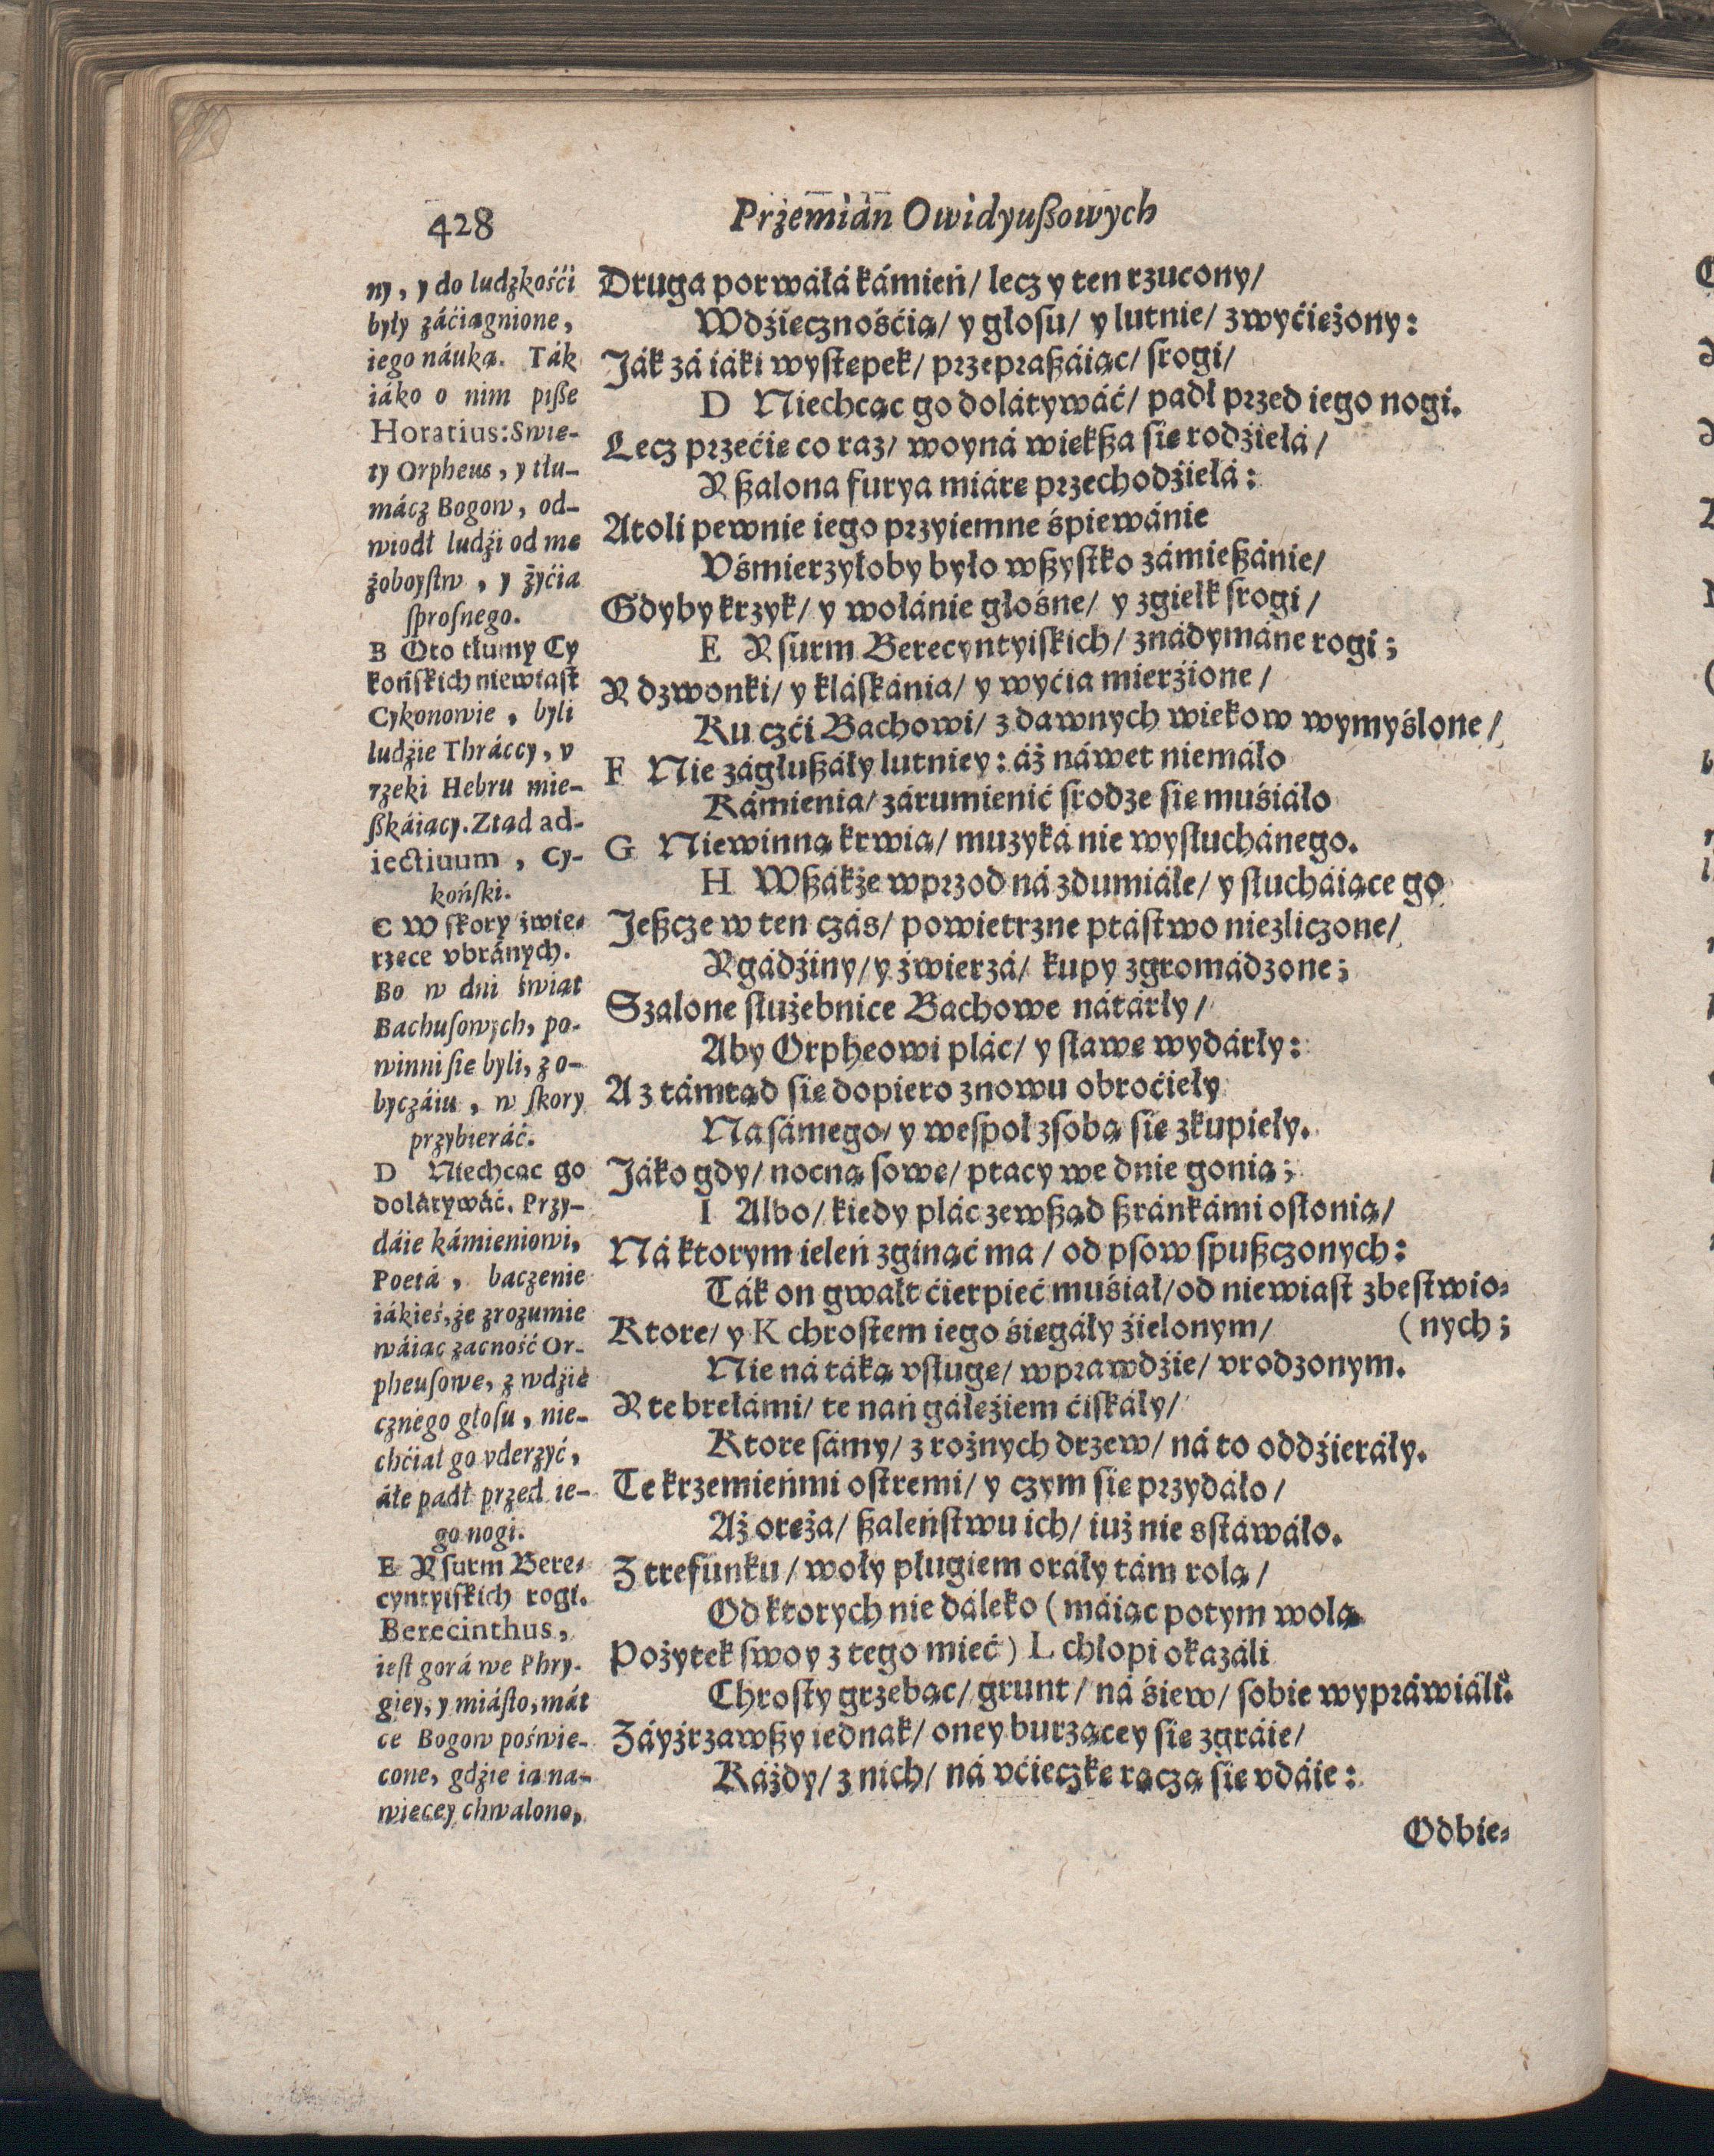 428
Przemián Owidyuſzowych
ny, y do ludzkośći
były záćiągnione,
iego náuką. Ták
iáko o nim piſze
Horatius: Swię-
ty Orpheus, y tłu-
mácz Bogow, od-
wiodł ludźi od mę
żoboyſtw, y żyćia
ſproſnego.
B Oto tłumy Cy
końſkich niewiaſt
Cykonowie, byli
ludźie Thráccy, v
rzeki Hebru mie-
ſzkáiący. Ztąd ad-
iectiuum, Cy-
końſki.
C W ſkory źwie-
rzęce vbránych.
Bo w dni świąt
Bachuſowych, po-
winni ſie byli, z o-
byczáiu, w ſkory
przybieráć.
D Niechcąc go
dolátywáć. Przy-
dáie kámieniowi,
Poetá, baczenie
iákieś, że zrozumie
wáiąc zacność Or-
pheuſowę, z wdzię
cznego głoſu, nie-
chćiał go vderzyć,
ále padł przed ie-
go nogi.
E Y ſurm Bere-
cyntyiſkich rogi.
Berecinthus,
ieſt gorá we Phry-
giey, y miáſto, mát
ce Bogow poświę-
cone, gdźie ią na-
więcey chwalono,
Druga porwáłá kámień/ lecz y ten rzucony/
Wdźięcznośćią/ y głoſu/ y lutnie/ zwyćiężony:
Ják zá iáki wyſtępek/ przepraſzáiąc/ ſrogi/
D Niechcąc go dolátywáć/ padł przed iego nogi.
Lecz przećie co raz/ woyná większa ſię rodźiełá/
Y ſzalona furya miárę przechodźiełá:
Atoli pewnie iego przyiemne śpiewánie
Vśmierzyłoby było wſzyſtko zámieſzánie/
Gdyby krzyk/ y wołánie głośne/ y zgiełk ſrogi/
E Y ſurm Berecyntyiſkich/ znádymáne rogi;
Y dzwonki/ y kláſkánia/ y wyćia mierźione/
Ku czći Bachowi/ z dawnych wiekow wymyślone/
F Nie zágłuſzáły lutniey: áż náwet niemáło
Kámienia/ zárumienić ſrodze ſię muśiáło
G Niewinną krwią/ muzyká nie wyſłuchánego.
H Wſzákże wprzod ná zdumiáłe/ y ſłucháiące go
Jeſzcze w ten czás/ powietrzne ptáſtwo niezliczone/
Y gádźiny/ y źwierzá/ kupy zgromádzone;
Szalone ſłużebnice Bachowe nátárły/
Aby Orpheowi plác/ y ſławę wydárły:
A z támtąd ſię dopiero znowu obroćieły
Na ſámego/ y weſpoł z ſobą ſię zkupieły.
Jáko gdy/ nocną ſowę/ ptacy we dnie gonią;
I Albo/ kiedy plác zewſząd ſzránkámi oſłonią/
Ná ktorym ieleń zginąć ma/ od pſow ſpuſzczonych:
Ták on gwałt ćierpieć muśiał/ od niewiaſt zbeſtwio-
Ktore/ y K chroſtem iego śięgáły źielonym/ (nych;
Nie ná táką vſługę/ wprawdźie/ vrodzonym.
Y te brełámi/ te nań gáłęźiem ćiſkáły/
Ktore ſámy/ z rożnych drzew/ ná to oddźieráły.
Te krzemieńmi oſtremi/ y czym ſię przydáło/
Aż oręża/ ſzaleńſtwu ich/ iuż nie sſtawáło.
Z trefunku/ woły pługiem oráły tám rolą/
Od ktorych nie dáleko (máiąc potym wolą
Pożytek ſwoy z tego mieć) L chłopi okazáli
Chroſty grzebąc/ grunt/ ná śiew/ ſobie wypráwiáli.
Záyźrzawſzy iednak/ oney burzącey ſię zgráie/
Káżdy/ z nich/ ná vćieczkę rączą ſię vdáie:
Odbie-